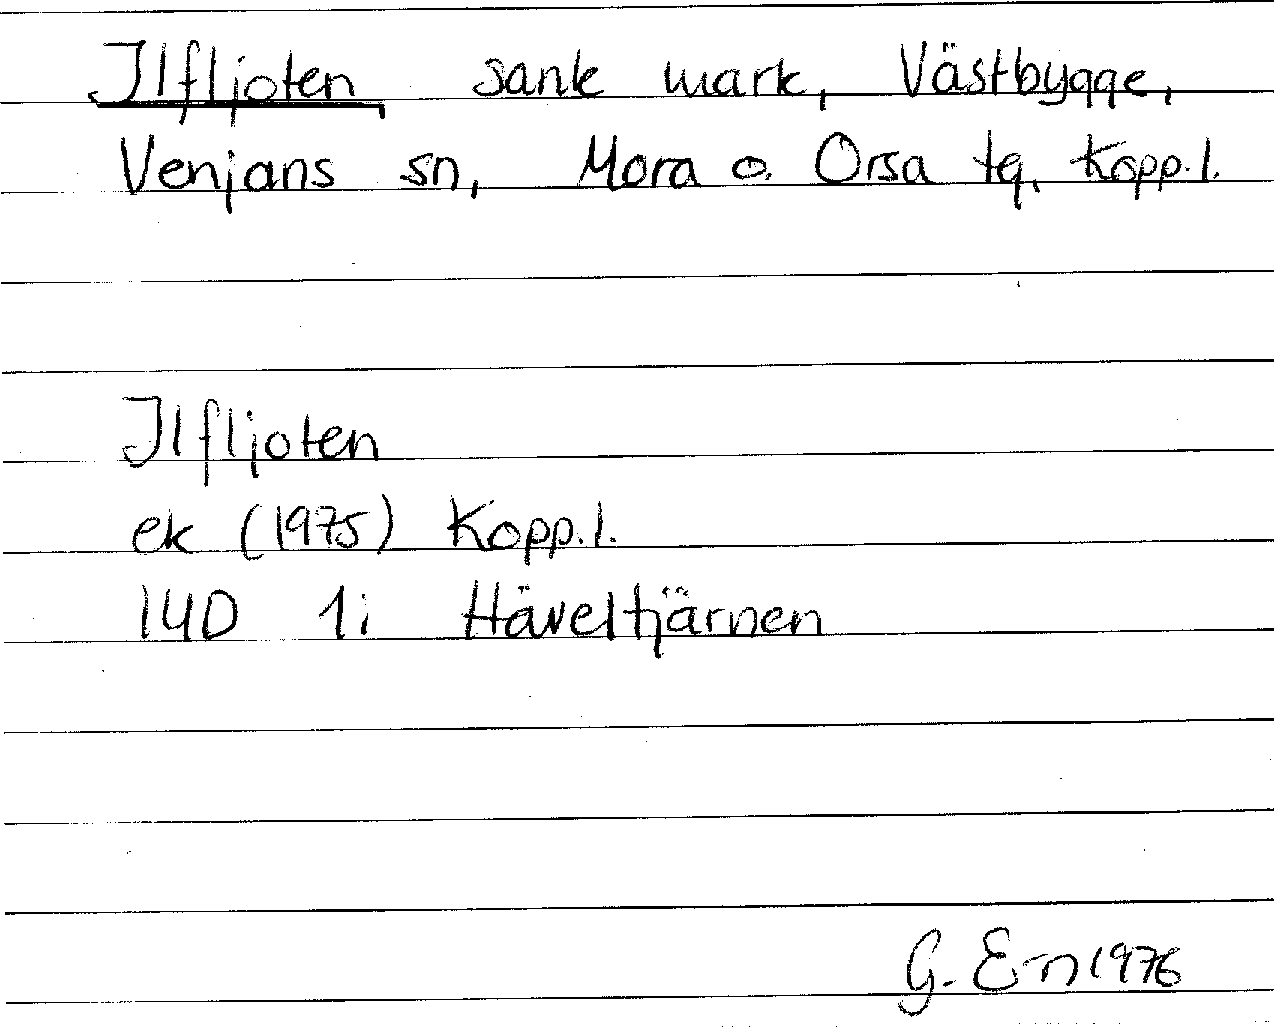 Ilfljoten, sank mark, Västbygge,
Venjans sn, Mora o. Orsa tg, Kopp.l.
Ilfljoten
ek (1975) Kopp.l.
14D 1i Häveltjärnen
G. E-n 1976